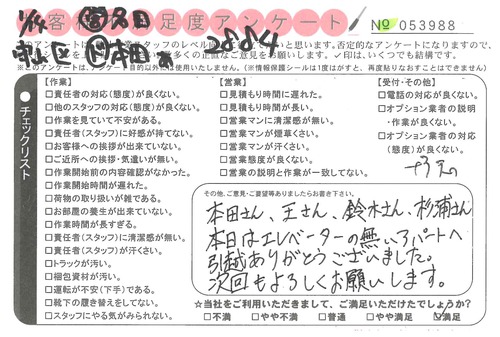 お客様満足度アンケート
№ 053988
1/14
守山区
本田
2884
※このアンケートは、アンケート目的以外には使用いたしません。(※情報保護シールは1度はがすと、再度貼りなおすことはできません)
チェックリスト
【作業】
□責任者の対応(態度)が良くない。
□他のスタッフの対応(態度)が良くない。
□作業を見ていて不安がある。
□責任者(スタッフ)に好感が持てない。
□お客様への挨拶が出来ていない。
□ご近所への挨拶・気遣いが無い。
□作業開始前の内容確認がなかった。
□作業開始時間が遅れた。
□荷物の取り扱いが雑である。
□お部屋の養生が出来ていない。
□作業時間が長すぎる。
□責任者(スタッフ)に清潔感が無い。
□責任者(スタッフ)が汗くさい。
□トラックが汚い。
□梱包資材が汚い。
□運転が不安(下手)である。
□靴下の履き替えをしてない。
□スタッフにやる気がみられない。
【営業】
□見積もり時間に遅れた。
□見積もり時間が長い。
□営業マンに清潔感が無い。
□営業マンが煙草くさい。
□営業マンが汗くさい。
□営業態度が良くない。
□営業の説明と作業が一致してない。
【受付・その他】
□電話の対応が良くない。
□オプション業者の説明
・作業が良くない。
□オプション業者の対応
(態度)が良くない。
その他、ご意見・ご要望等ありましたらお書き下さい。
本田さん、王さん、鈴木さん、杉浦さん
本日はエレベーターの無いアパートへ
引越ありがとうございました。
次回もよろしくお願いします。
☆当社をご利用いただきまして、ご満足いただけたでしょうか?
□不満 □やや不満 □普通 □やや満足 ☑満足